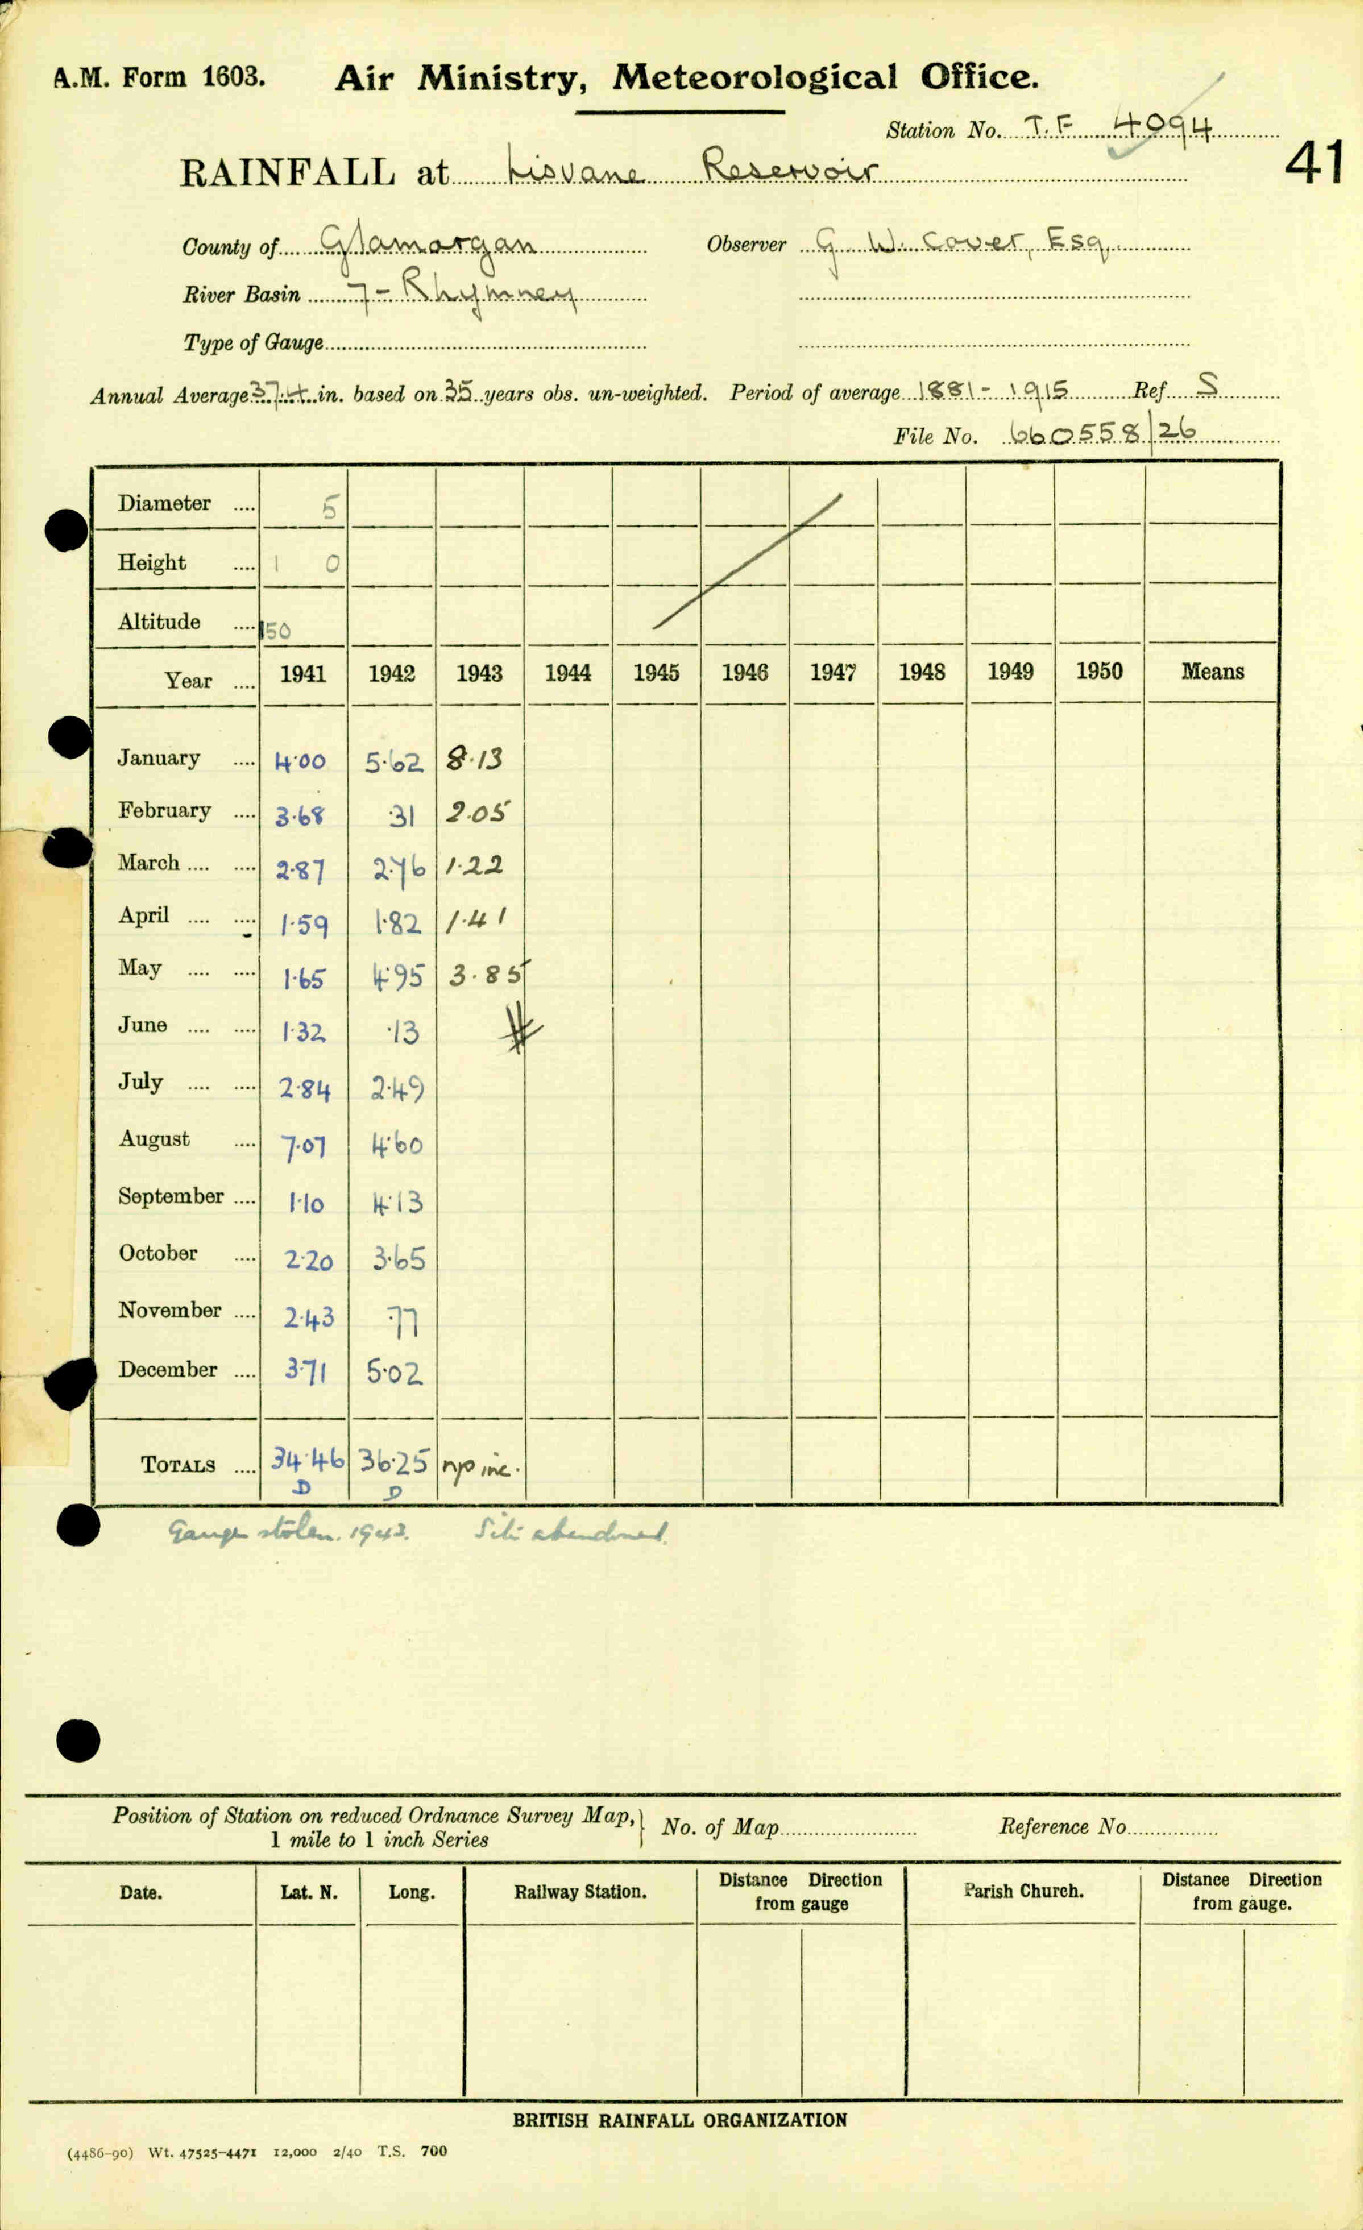 A.M. Form 1603. Air Ministry, Meteorological Office.
Station No. T.F 4094
41
RAINFALL at Lisvane Reservoir
County of Glamorgan Observer G. W. Cover, Esq.
River Basin 7 - Rhymney
Type of Gauge
Annual Average 37.4 in. based on 35 years obs. un-weighted. Period of average 1881 - 1915 Ref. S
File No. 660558/26
Diameter .... 5
Height .... 1 0
Altitude .... 150
Year .... 1941 1942 1943 1944 1945 1946 1947 1948 1949 1950 Means
January .... 4.00 5.62 8.13
February .... 3.68 .31 2.05
March .... .... 2.87 2.76 1.22
April .... .... 1.59 1.82 1.41
May .... .... 1.65 4.95 3.85
June .... .... 1.32 .13
July .... .... 2.84 2.49
August .... 7.07 4.60
September .... 1.10 4.13
October .... 2.20 3.65
November .... 2.43 .77
December .... 3.71 5.02
TOTALS .... 34.46 36.25 np inc.
D D
Gauge stolen. 1943. Site abandoned.
Position of Station on reduced Ordnance Survey Map, } No. of Map Reference No.
1 mile to 1 inch Series
Date. Lat. N. Long. Railway Station. Distance Direction from gauge Parish Church. Distance Direction from gauge.
BRITISH RAINFALL ORGANIZATION
(4486-90) Wt. 47525-4471 12,000 2/40 T.S. 700